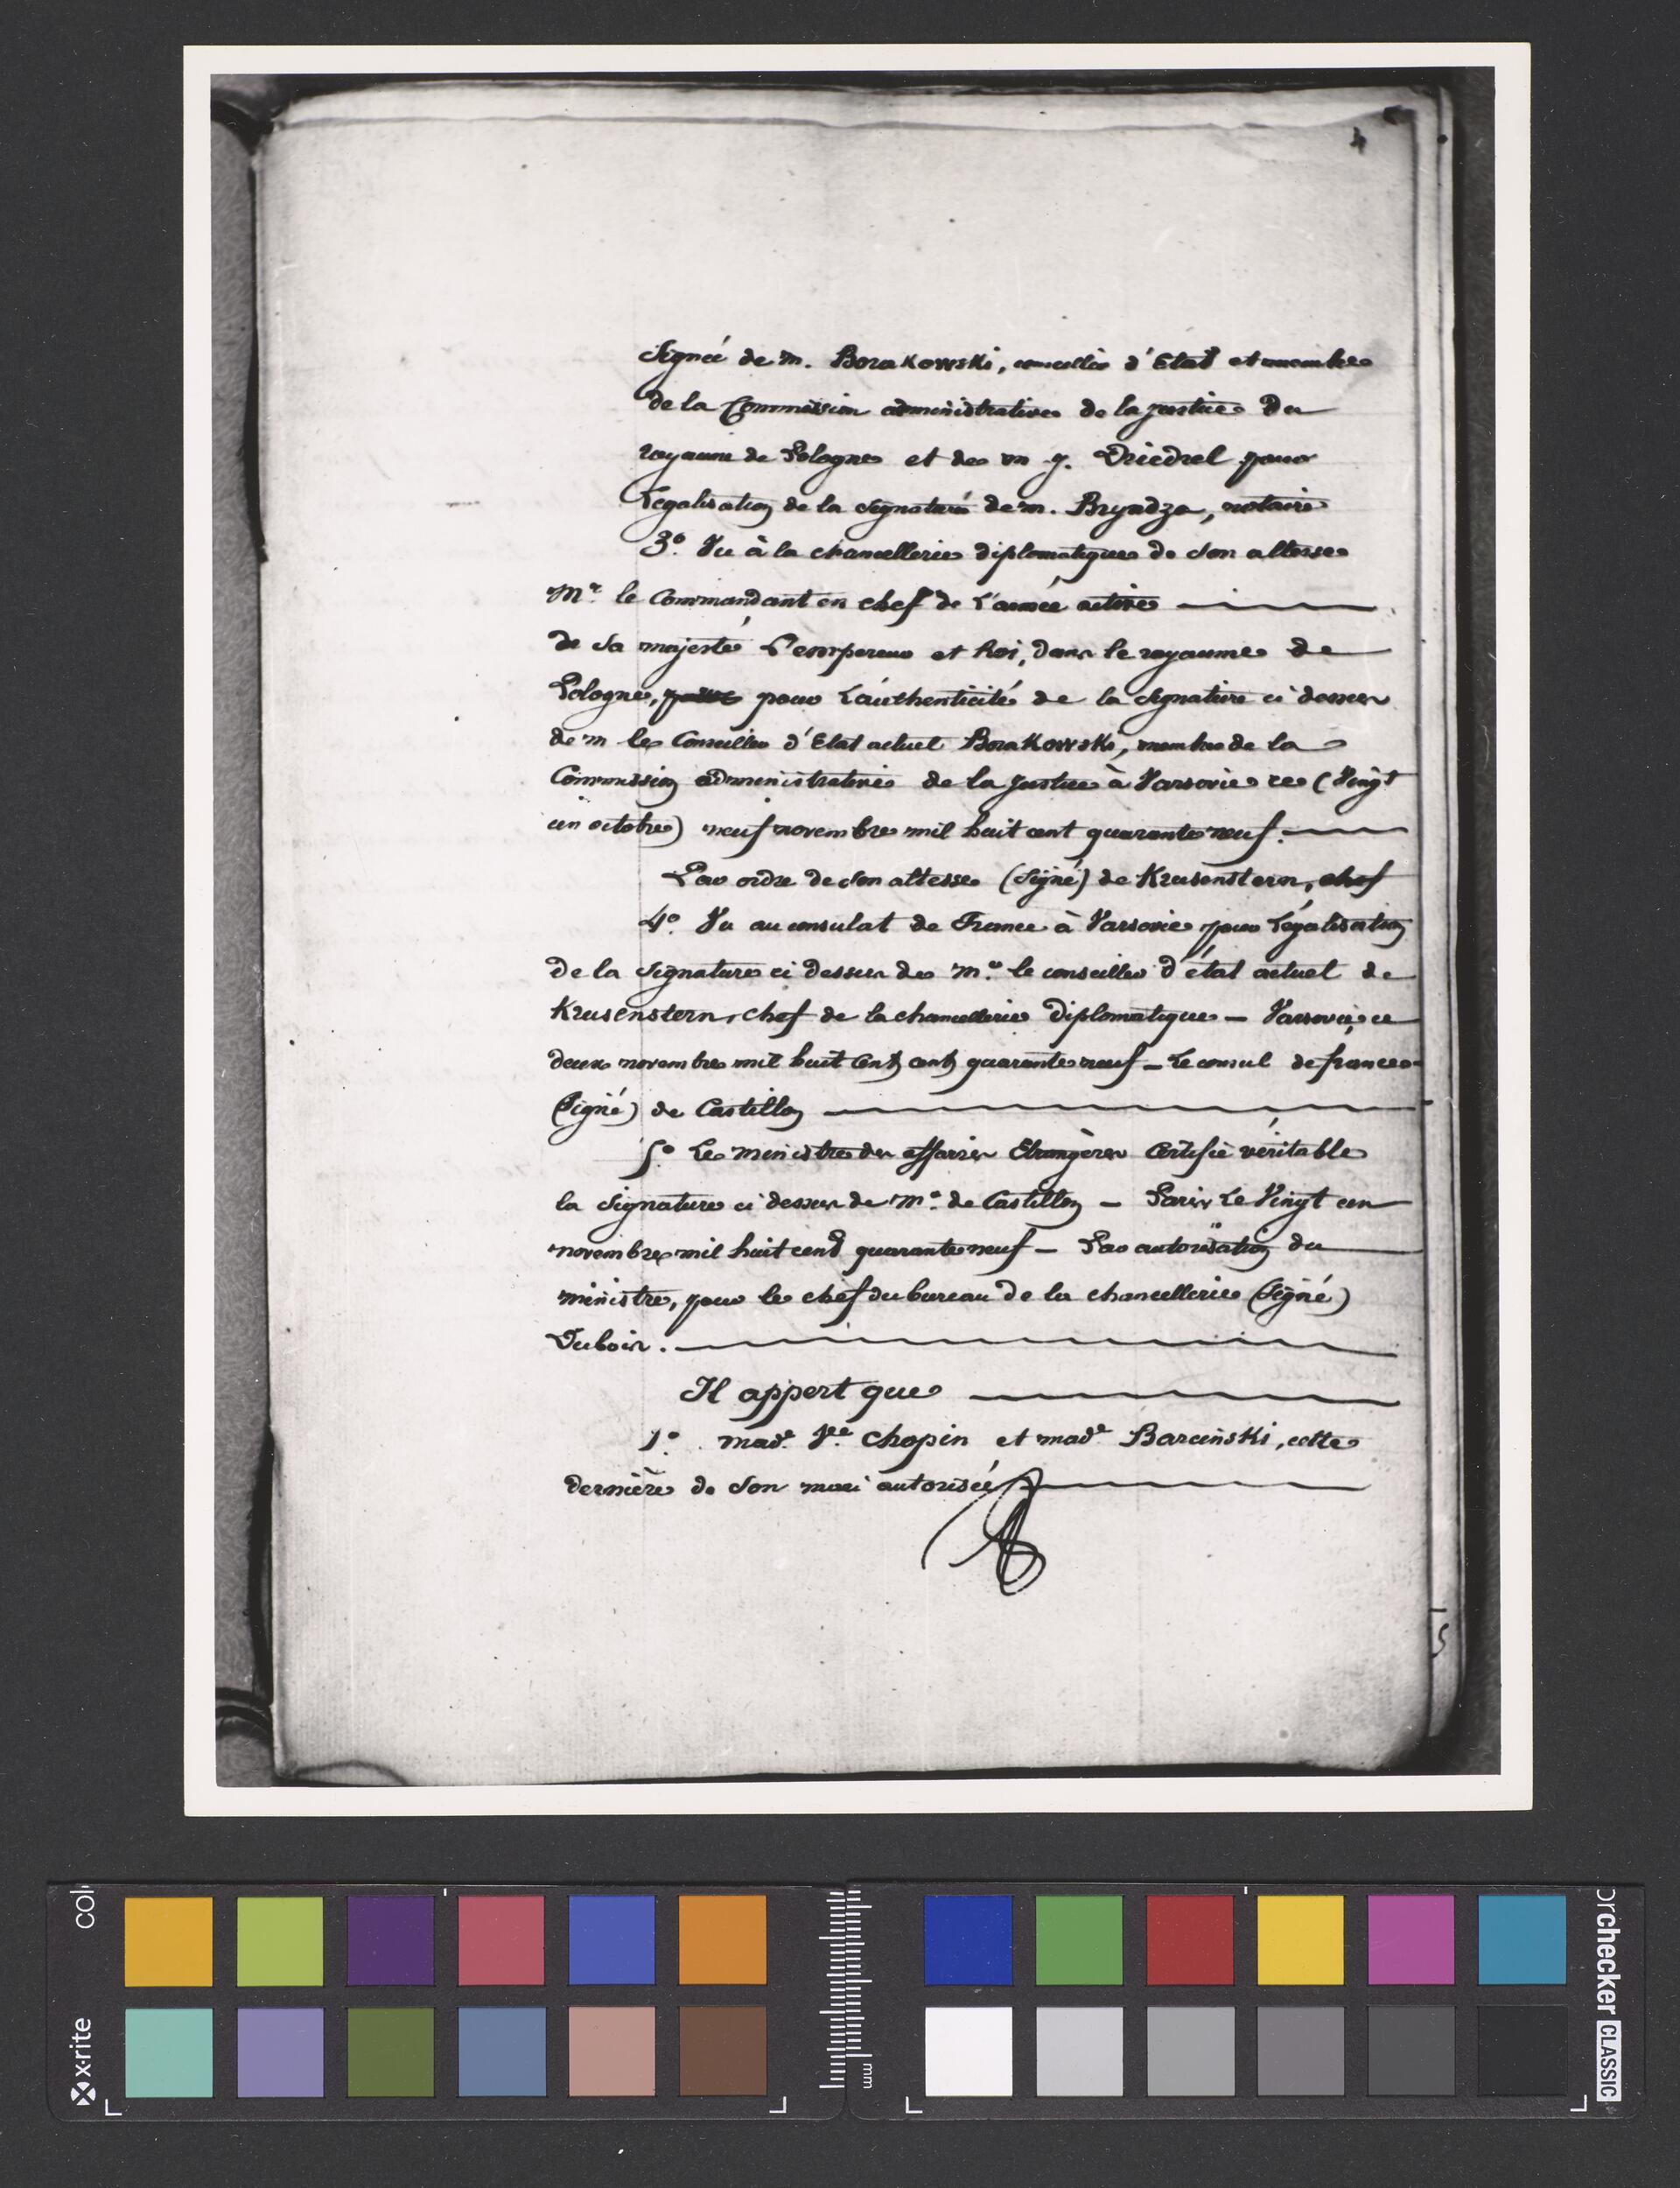 4
Signée de m. Borakowski, conseiller d'Etat et membre
de la Commission administrative de la justice du
royaume de Pologne et de m y. Driedrel pour
Légalisation de la signature de m. Bryndza, notaire
3º. Vu à la chancellerie diplomatique de son altesse
Mr. le Commandant en chef de l'armée active
de sa majesté l'empereur et Roi, dans le royaume de
Pologne, pour l'authenticité de la signature ci dessus
de m le Conseiller d'Etat actuel Borakowski, membre de la
Commission administrative de la justice à Varsovie ce (Vingt
un octobre) neuf novembre mil huit cent quarante neuf.
Par ordre de son altesse (signé) de Krusenstern, chef
4º. Vu au consulat de France à Varsovie pour légalisation
de la signature ci dessus de mr. le conseiller d'état actuel de
Krusenstern, chef de la chancellerie diplomatique – Varsovie, ce
deux novembre mil huit cent cent quarante neuf – Le consul de france
(signé) de Castillon
5º Le ministre des affaires Etrangères Certifie véritable
la signature ci dessus de mr. de Castillon – Paris Le Vingt un
novembre mil huit cent quarante neuf – Par autorisation du
ministre, pour le chef du bureau de la chancellerie (signé)
Dubois.
Il appert que
1º. made. Vve Chopin et made Barcinski, cette
dernière de son mari autorisée
x-rite
col
mm
orchecker CLASSIC